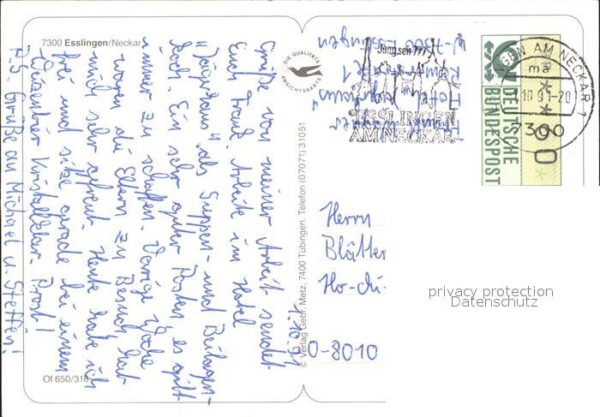 7300 Esslingen/Neckar
1.10.91
Grüße von meiner Arbeit sendet
Euch Arbeite im Hotel
"Jägerhaus" als Suppen- und Beilagen-
koch. Ein sehr guter Posten, es gibt
immer zu schaffen. Vorige Woche
waren die Eltern zu Besuch, hat
mich sehr gefreut. Heute habe ich
frei und sitze gerade bei einem
Dezanter Kristallklar Prost!
P.S. Grüße an Michael u. Steffen!
Of 650/318
DIE QUALITÄTS
ANSICHTSKARTE
© Verlag Gebr. Metz, 7400 Tübingen, Telefon (07071) 31051
Hotel "Jägerhaus"
Römerstraße 1
W-7300 Esslingen
ESSLINGEN
AM NECKAR
AM NECKAR 1
ma
7300
DEUTSCHE
BUNDESPOST
Herrn
Blätter
Ho-
O-8010
privacy protection
Datenschutz